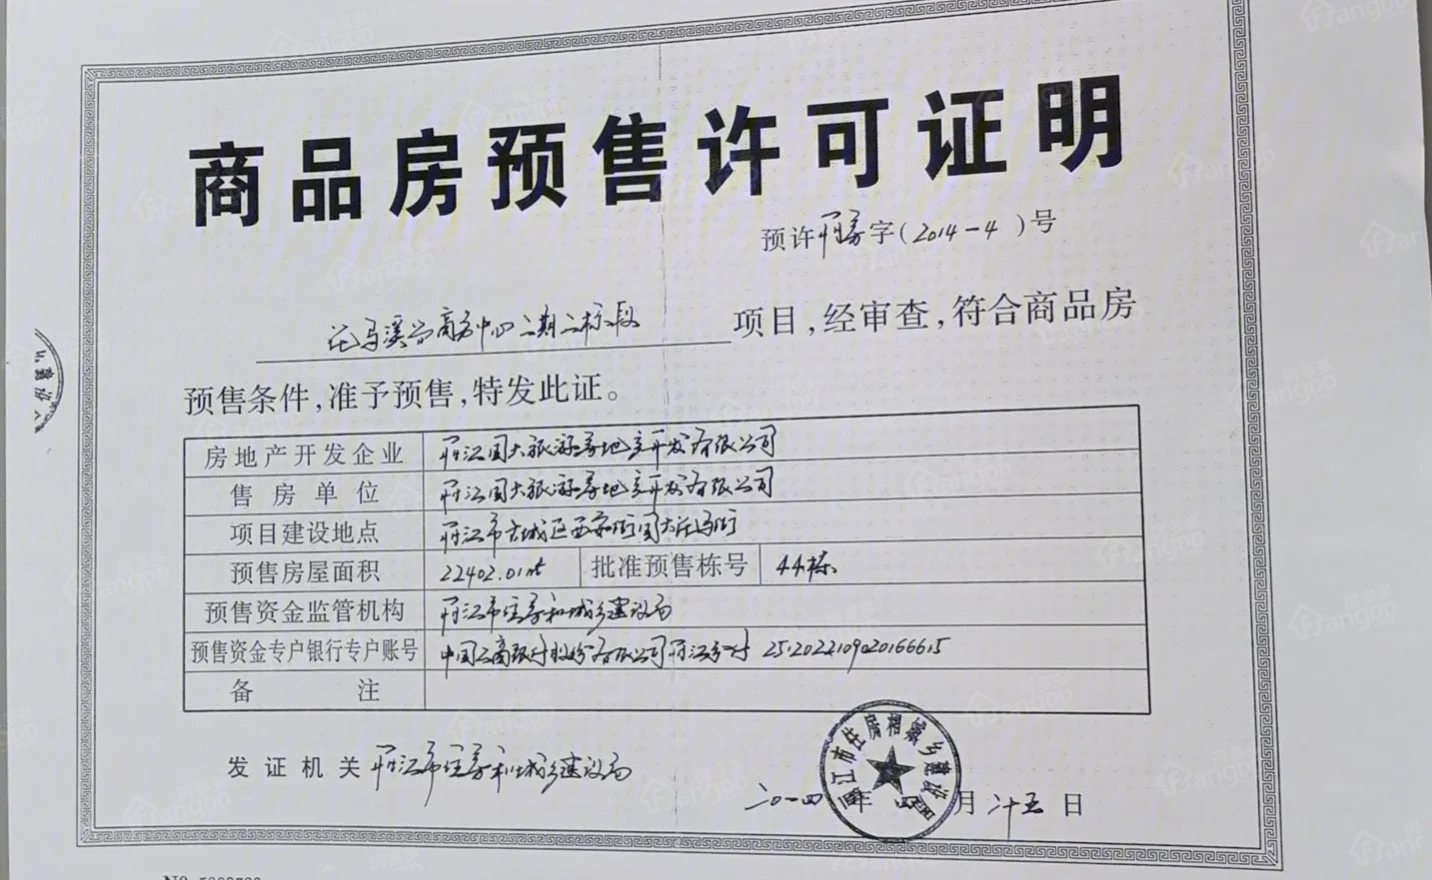 商品房预售许可证明
预许丽房字(2014-4)号
花马溪谷商务中心二期二标段 项目,经审查,符合商品房
预售条件,准予预售,特发此证。
房地产开发企业 丽江国大旅游房地产开发有限公司
售房单位 丽江国大旅游房地产开发有限公司
项目建设地点 丽江市古城区西安街国大花马街
预售房屋面积 22402.01㎡ 批准预售栋号 44栋
预售资金监管机构 丽江市住房和城乡建设局
预售资金专户银行专户账号 中国工商银行股份有限公司丽江分行 2512022109020166615
备注
发证机关 丽江市住房和城乡建设局
二〇一四年 四月 廿五日
丽江市住房和城乡建设局